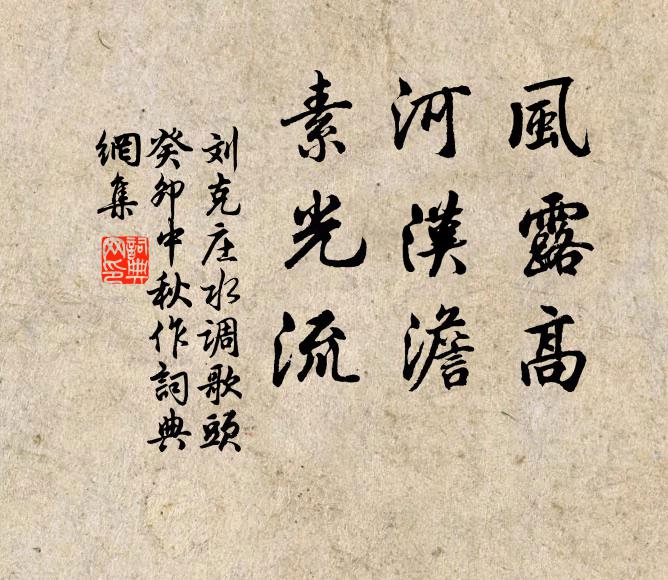 風露高
河漢澹
素光流
刘克庄水调歌頭
癸卯中秋作詞典
網集
詞典
网印